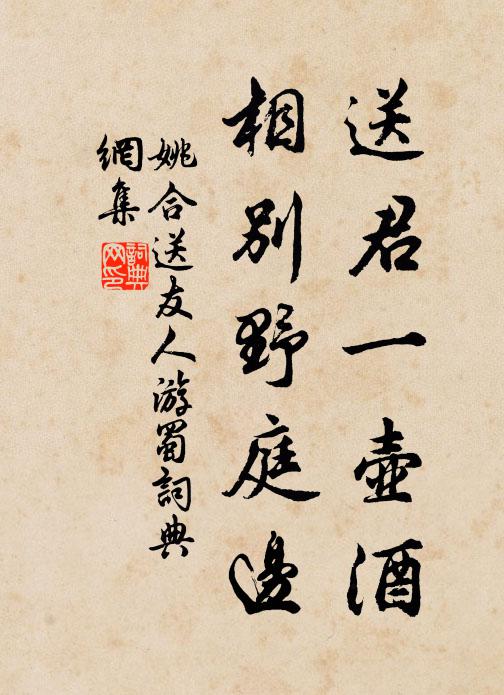 送君一壺酒
相別野庭邊
姚合送友人游蜀詞典
網集
詞典网印